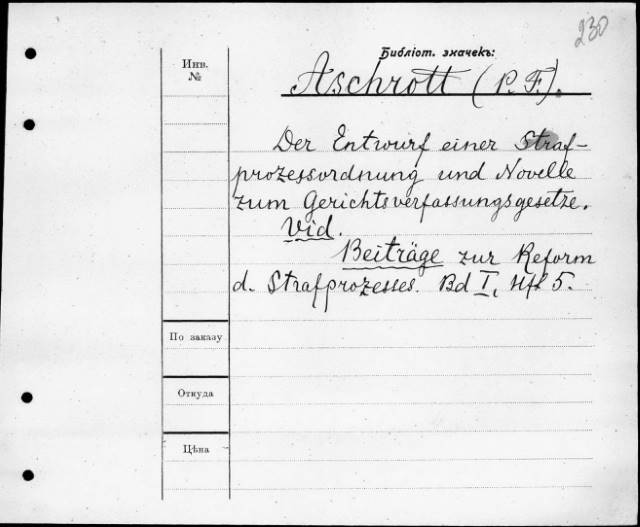 230
Библіот. значекъ:
Инв.
№
Aschrott (P. F.).
Der Entwurf einer Straf-
prozessordnung und Novelle
zum Gerichtsverfassungsgesetze.
Vid.
Beiträge zur Reform
d. Strafprozesses. Bd I, Hft 5.
По заказу
Откуда
Цѣна